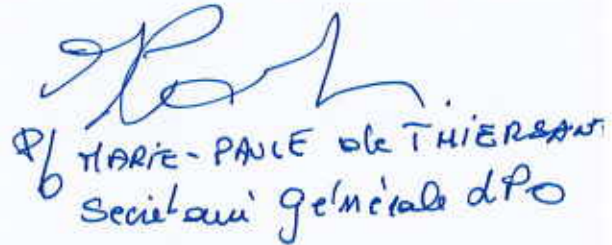 P/o MARIE-PAULE de THIERSANT
Secrétaire générale dPo